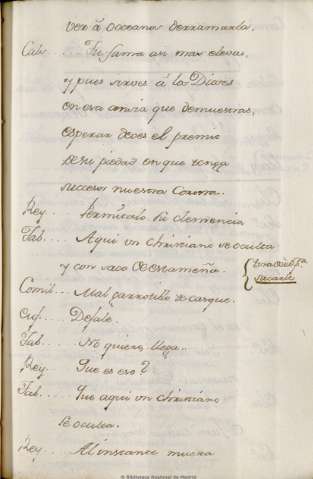 ver à Oceano derramarla.
Cab... Tu fama asi mas elevas,
y pues sirves á la Diosa
en esa ansia que demuestras,
esperar deves el premio
de su piedad en que tenga
succesor nuestra Corona.
Rey. Permitalo su clemencia
Tab... Aqui un christiano se oculta
y con saco de estameña. { p.ª
sacarle
Comil... Mal garrotillo te cargue.
Out... Dejale.
Tab... No quiero, llega..
Rey... Que es eso?
Tab... Que aqui un christiano
se oculta.
Rey... Al instante muera
© Biblioteca Nacional de Madrid